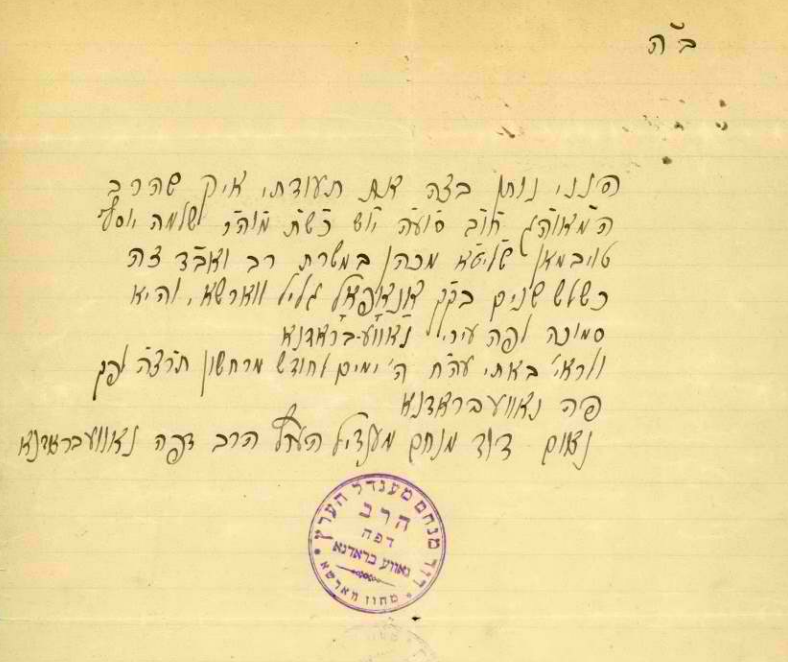 ב״ה
הנני נותן בזה את תעודתי, איך שהרב
המאוה״ג חו״ב סוע״ה יו״ש כש״ת מוה״ר שלמה יוסף
טויבמאן שליט״א מכהן במשרת רב ואב״ד זה
כשלש שנים בק״ק גליל ווארשא, והיא
סמוכה לפה עירי נאווע-בראדנא
ולראי׳ באתי עה״ח ה׳ ימים לחודש מרחשון תרצ״ה לפק
פה נאוועבראדנא
נאום דוד מנחם מענדיל הרב דפה נאוועבראדנא
דוד מנחם מענדל הערץ
הרב
דפה
נאווע בראדנא
מחוז ווארשא